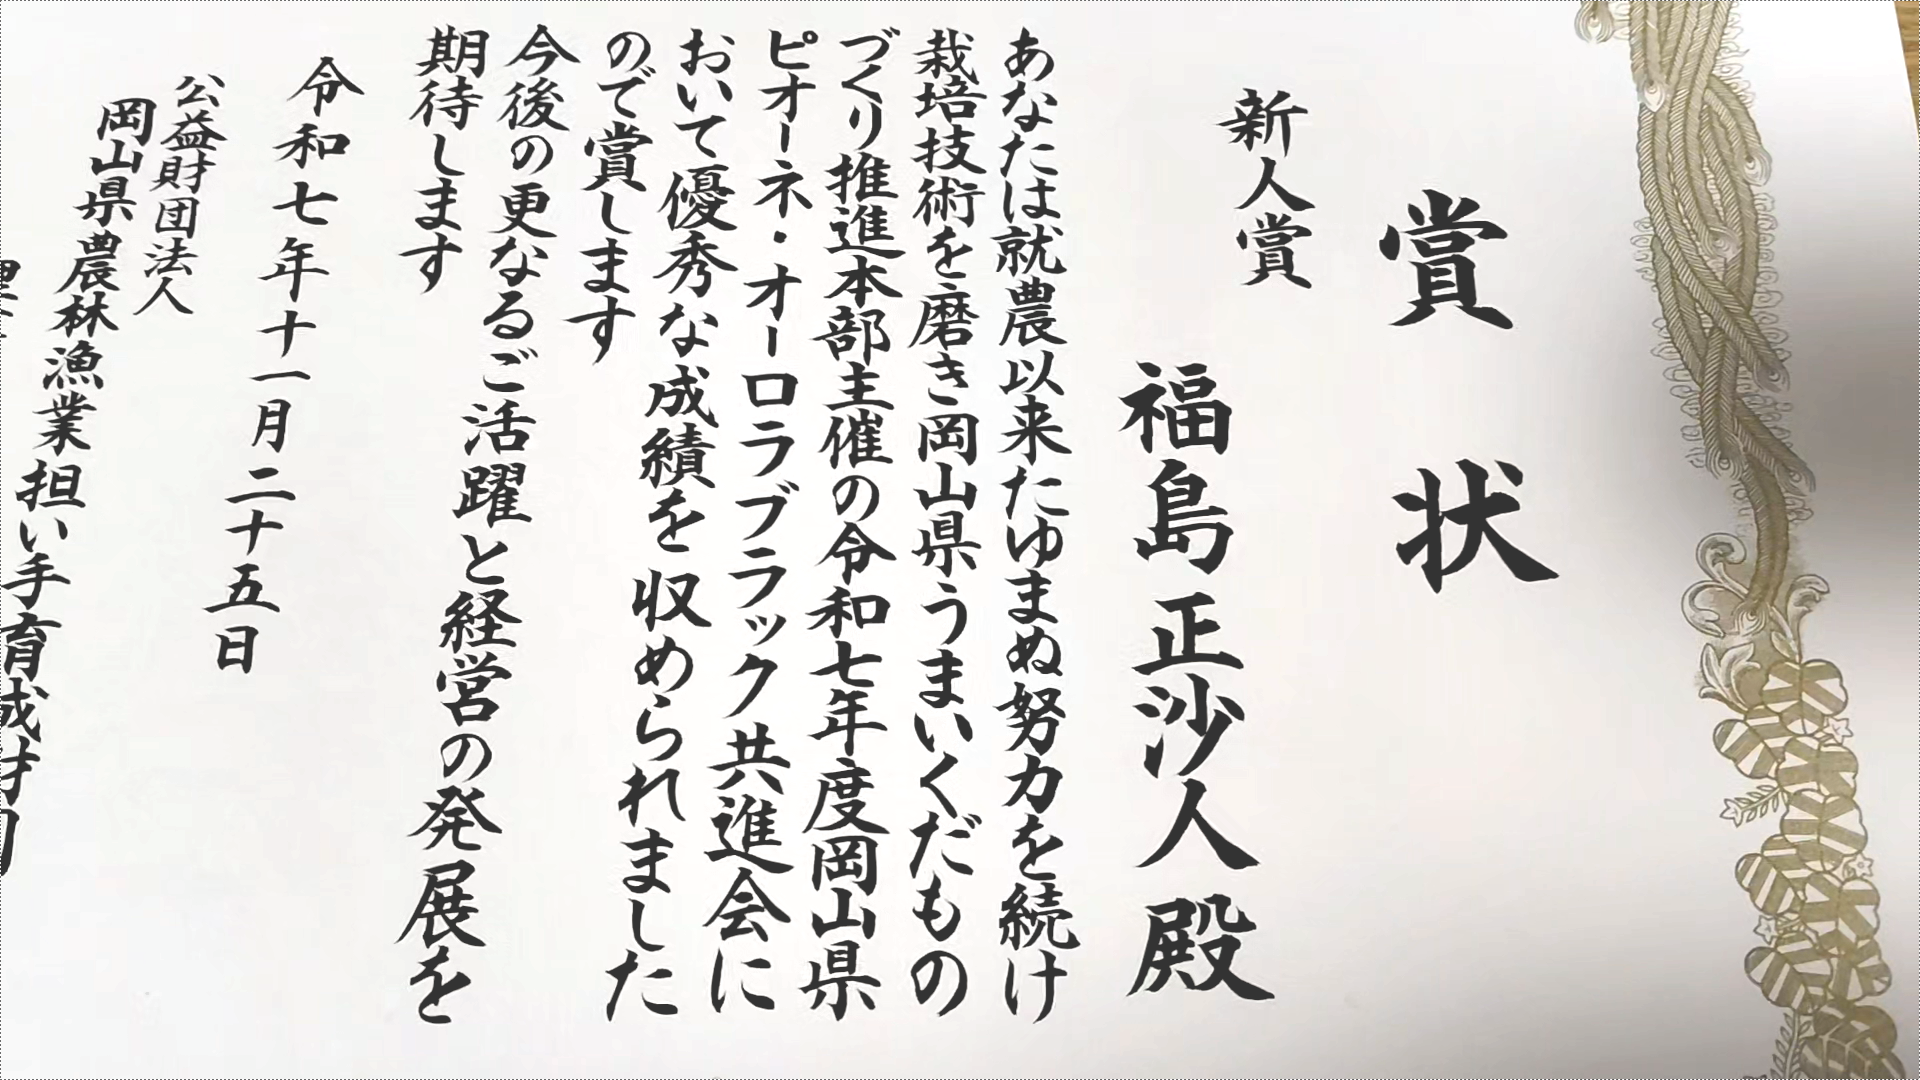 賞状
新人賞
福島正沙人殿
あなたは就農以来たゆまぬ努力を続け
栽培技術を磨き岡山県うまいくだもの
づくり推進本部主催の令和七年度岡山県
ピオーネ・オーロラブラック共進会に
おいて優秀な成績を収められました
ので賞します
今後の更なるご活躍と経営の発展を
期待します
令和七年十一月二十五日
公益財団法人
岡山県農林漁業担い手育成財団